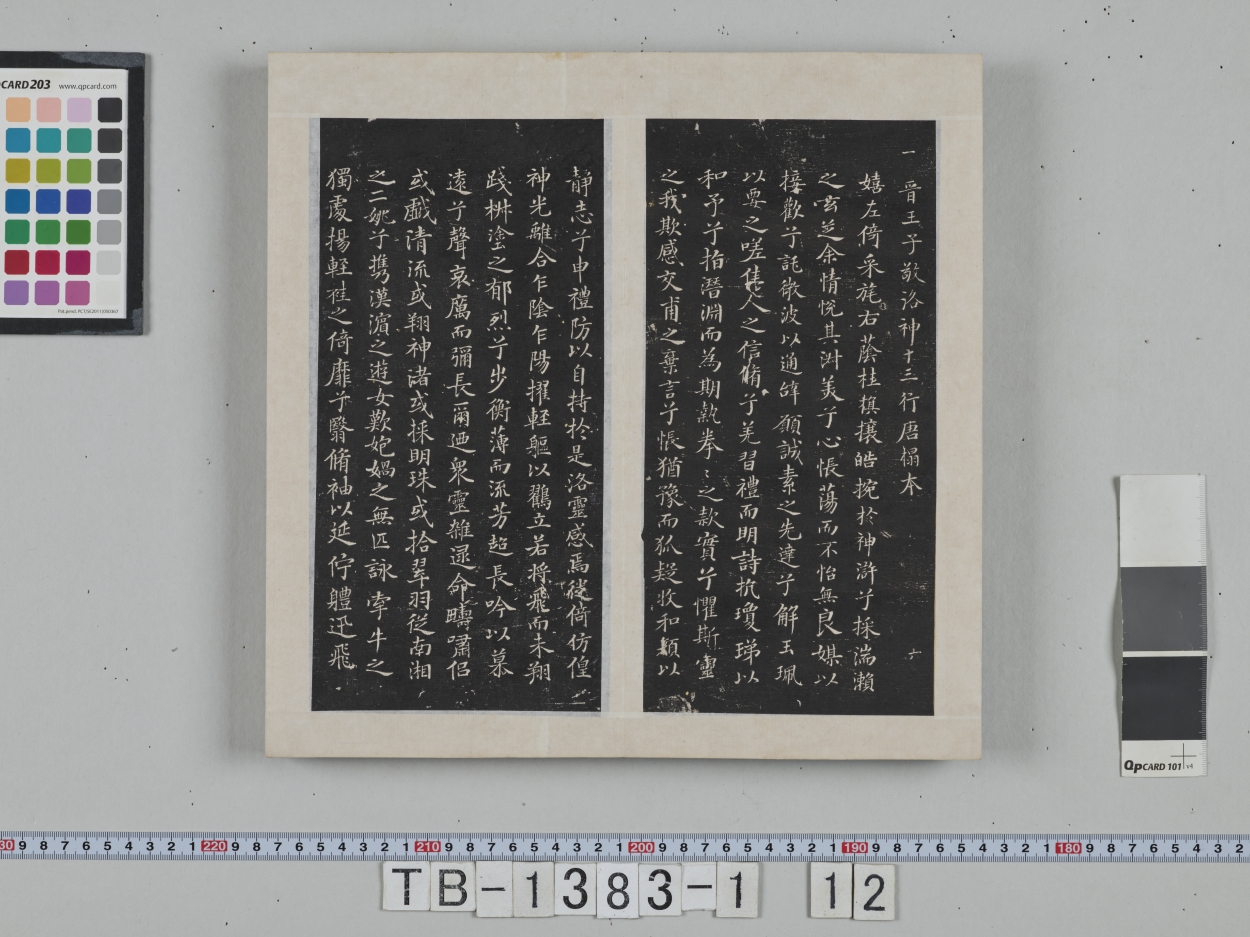 一
晉王子敬洛神十三行唐榻本
嬉左倚采旄右蔭桂旗攘皓捥於神滸兮採湍瀨
之玄芝余情悅其淑美兮心悵蕩而不怡無良媒以
接歡兮託微波以通辭願誠素之先達兮解玉珮
以要之嗟佳人之信脩兮羌習禮而明詩抗瓊珶以
和予兮指潛淵而為期執拳〻之款實兮懼斯靈
之我欺感交甫之棄言兮悵猶豫而狐疑收和顏以
六
靜志兮申禮防以自持於是洛靈感焉徙倚仿偟
神光離合乍陰乍陽擢輕軀以鶴立若將飛而未翔
踐椒塗之郁烈兮步衡薄而流芳超長吟以慕
遠兮聲哀厲而彌長爾迺衆靈雜遝命疇嘯侶
或戲清流或翔神渚或採明珠或拾翠羽從南湘
之二姚兮攜漢濱之遊女歎匏媧之無匹詠牽牛之
獨處揚輕袿之倚靡兮翳脩袖以延佇體迅飛
QPCARD 203 www.qpcard.com
QpCARD 101 v4
30 9 8 7 6 5 4 3 2 1 220 9 8 7 6 5 4 3 2 1 210 9 8 7 6 5 4 3 2 1 200 9 8 7 6 5 4 3 2 1 190 9 8 7 6 5 4 3 2 1 180 9 8 7 6 5 4 3 2
TB-1383-1 12